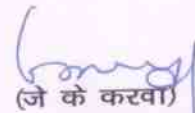 (जे के करवा)